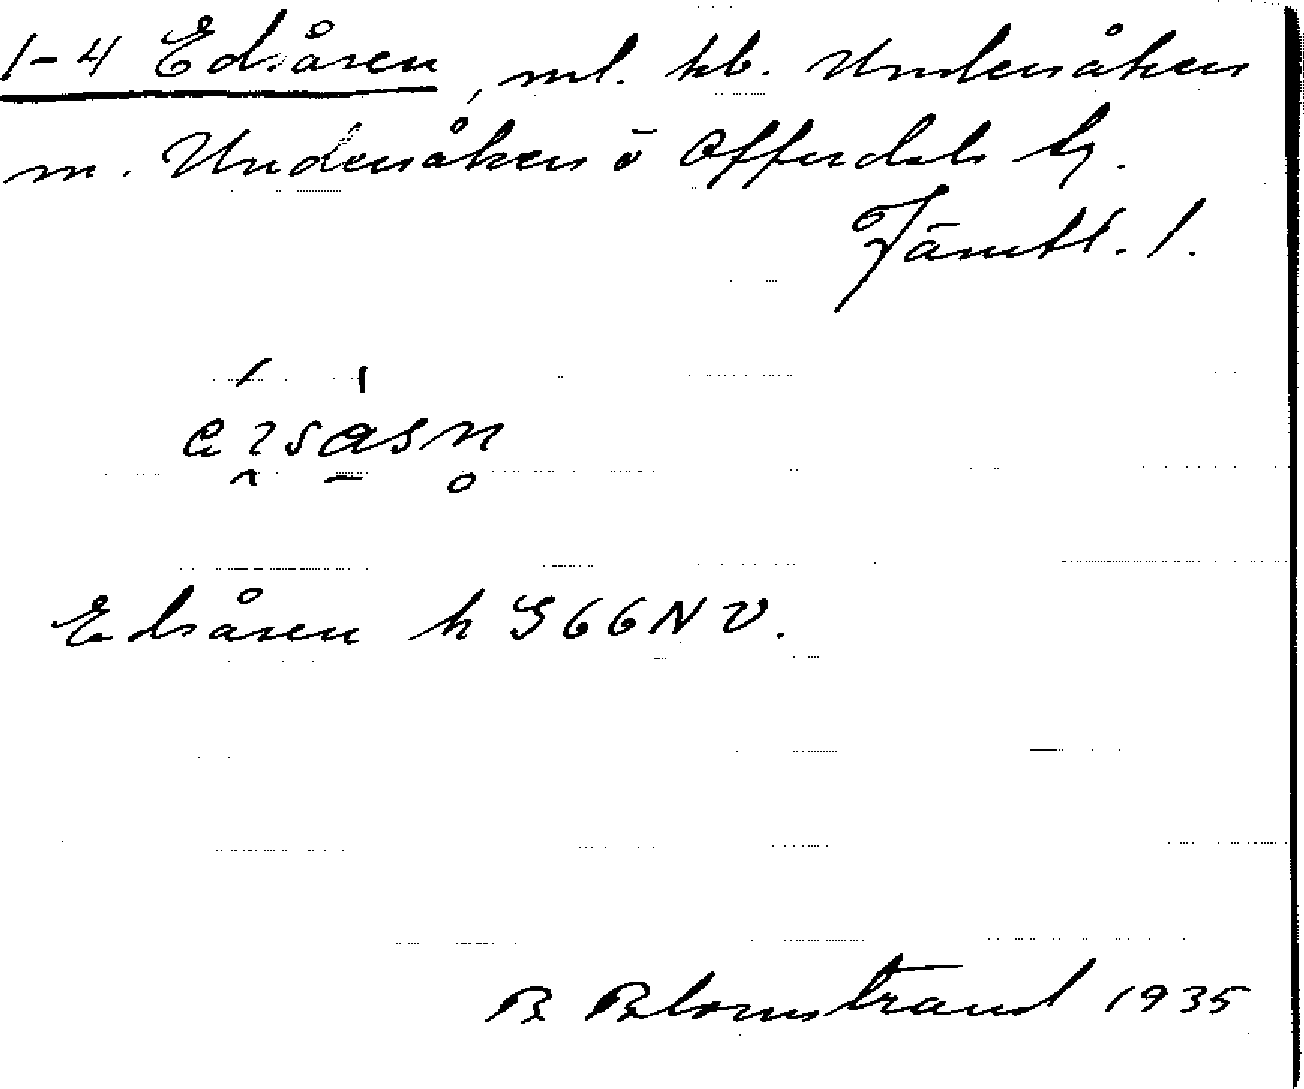 1-4 Edsåsen, ml. kb. Undersåkers
m. Undersåkers o Offerdals tg.
Jämtl. l.
Edsåsen k S66NV.
B Blomstrand 1935